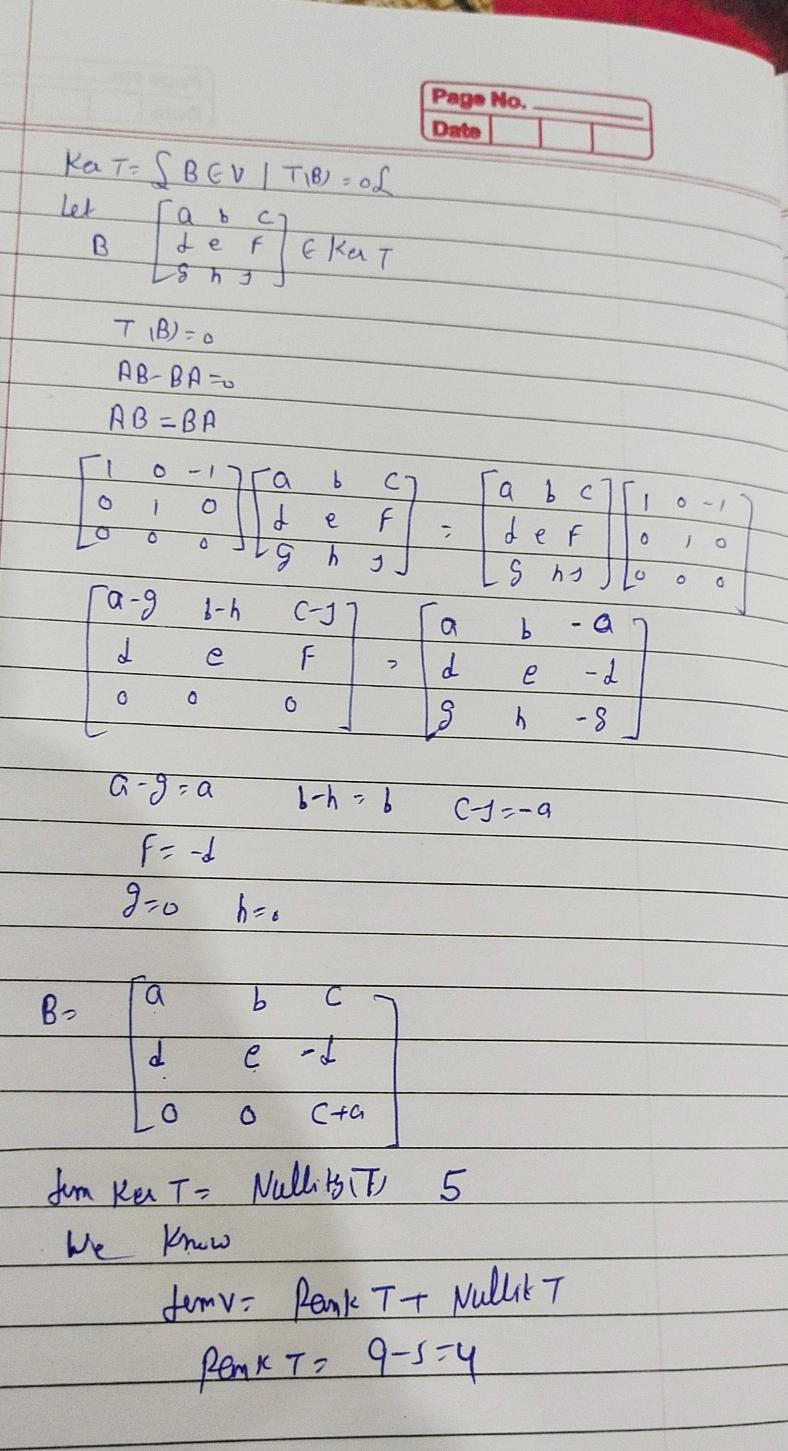 Page No.
Date
Ker T = { B ∈ V | T(B) = 0 }
Let
B [a b c; d e f; g h j] ∈ Ker T
T(B) = 0
AB - BA = 0
AB = BA
[1 0 -1; 0 1 0; 0 0 0] [a b c; d e f; g h j] = [a b c; d e f; g h j] [1 0 -1; 0 1 0; 0 0 0]
[a-g b-h c-j; d e f; 0 0 0] = [a b -a; d e -d; g h -g]
a-g = a b-h = b c-j = -a
f = -d
g = 0 h = 0
B = [a b c; d e -d; 0 0 c+a]
dim Ker T = Nullity(T) 5
We Know
dim V = Rank T + Nullit T
Rank T = 9-5 = 4